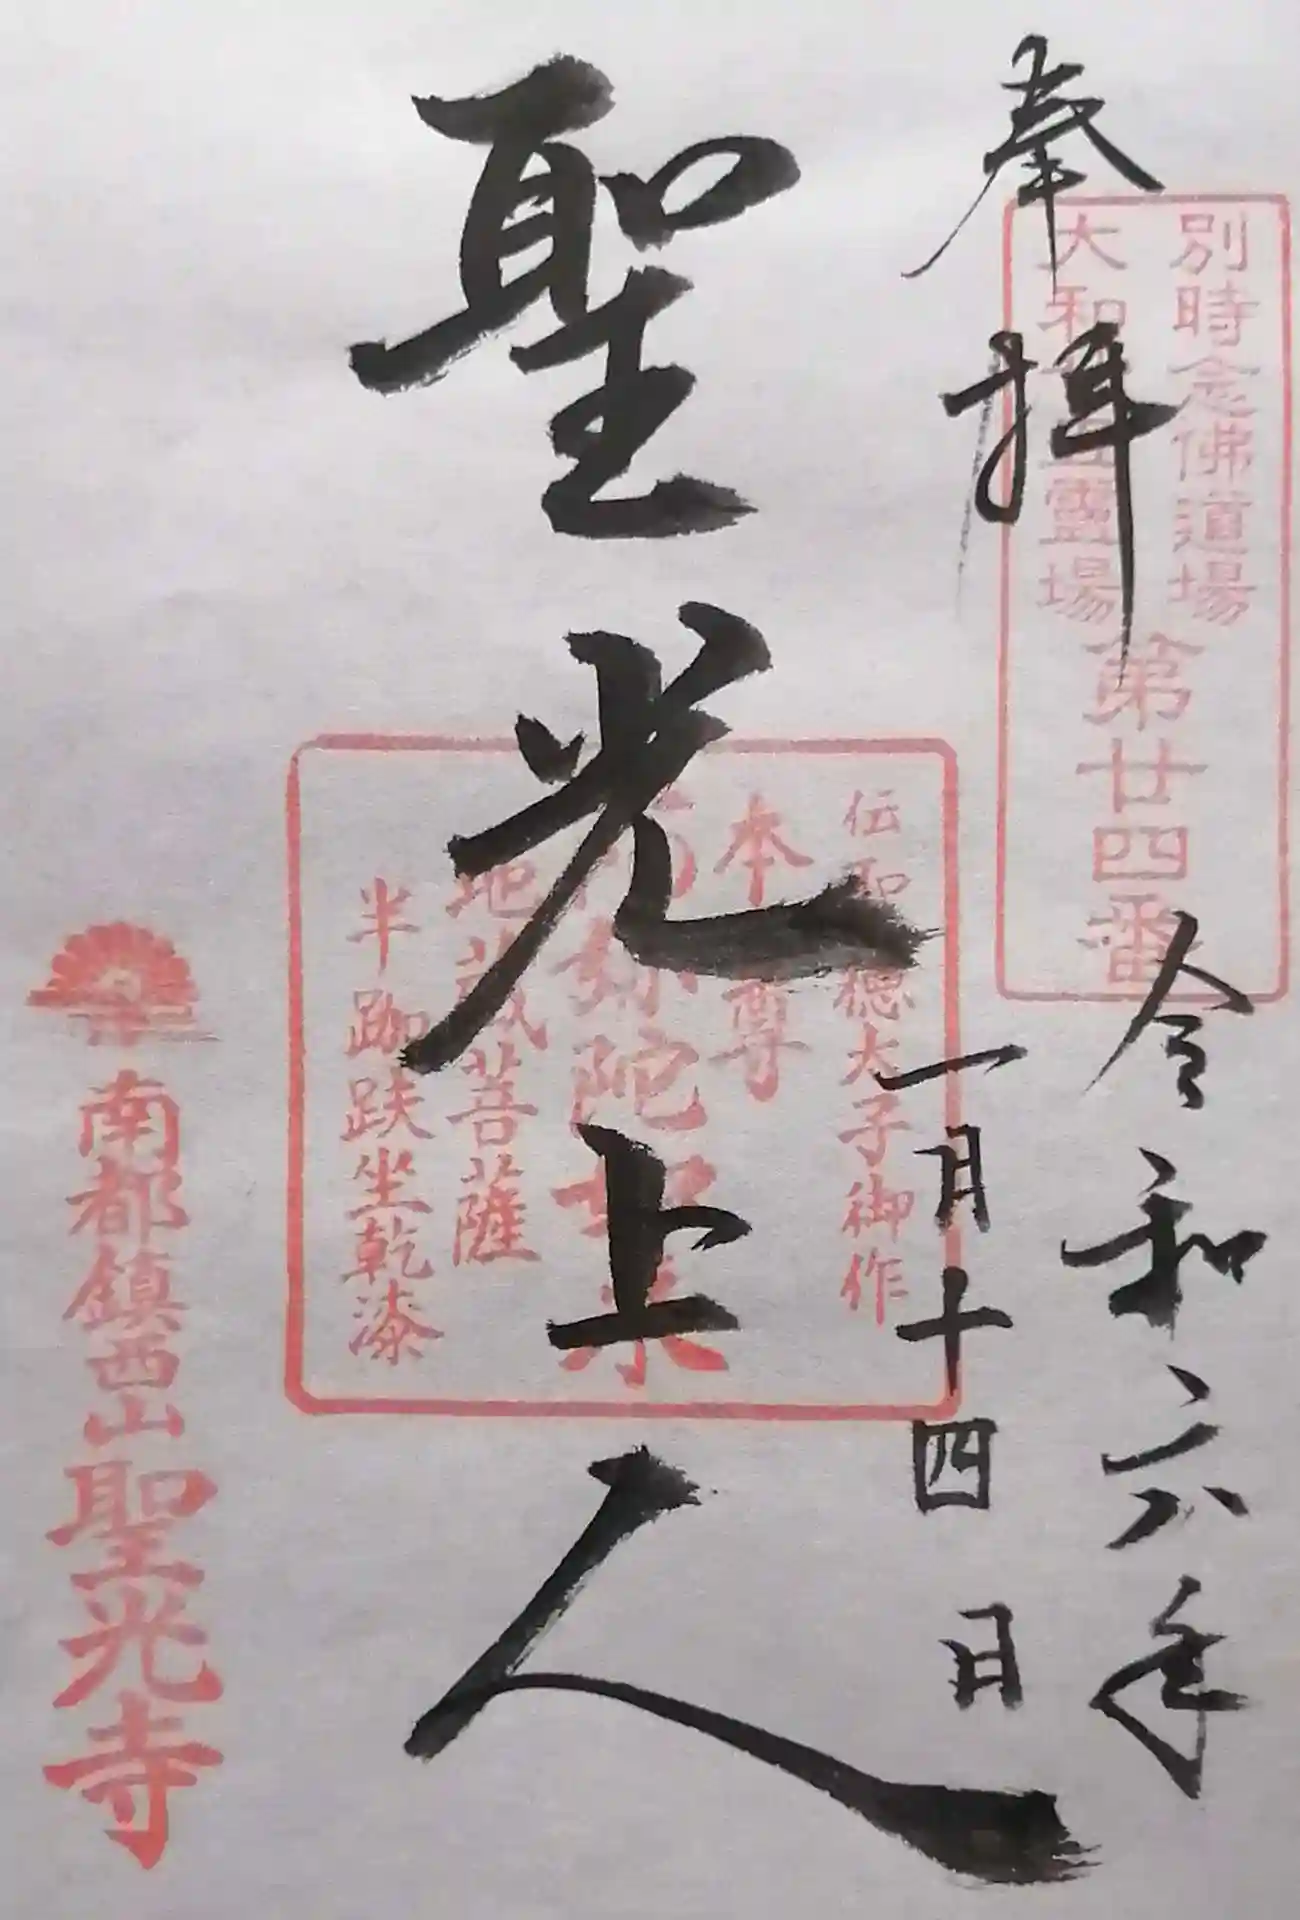 奉拝
別時念佛道場
大和 霊場
第廿四番
令和六年
一月十四日
聖光上人
伝聖徳大子御作
本尊
阿弥陀如来
地蔵菩薩
半跏趺坐乾漆
南都鎮西山聖光寺